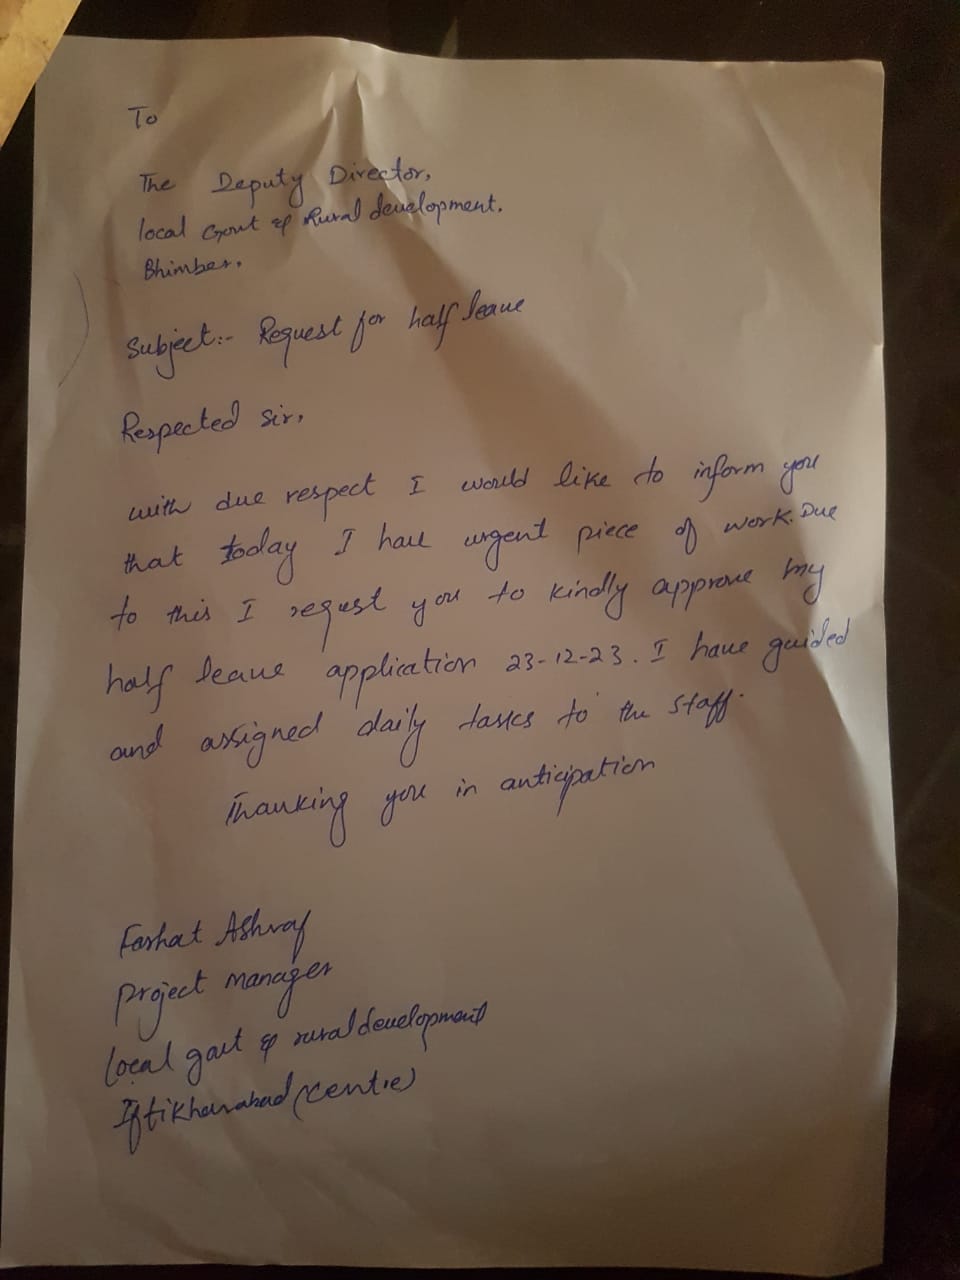 To
The Deputy Director,
local Govt & Rural development.
Bhimber.
Subject:- Request for half leave
Respected Sir,
with due respect I would like to inform you
that today I have urgent piece of work. Due
to this I request you to kindly approve my
half leave application 23-12-23. I have guided
and assigned daily tasks to the staff.
Thanking you in anticipation
Farhat Ashraf
Project Manager
local govt & rural development
Iftikharabad (centre)